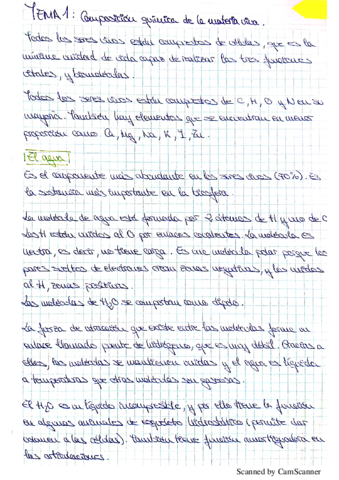 TEMA 1: Composición química de la materia viva.
Todos los seres vivos están compuestos de células, que es la
mínima unidad de vida capaz de realizar las tres funciones
vitales, y biomoléculas.
Todos los seres vivos están compuestos de C, H, O y N en su
mayoría. También hay elementos que se encuentran en menor
proporción como Ca, Mg, Na, K, I, Zn.
El agua
Es el componente más abundante en los seres vivos (70%). Es
la sustancia más importante en la biosfera.
La molécula de agua está formada por 2 átomos de H y uno de O
Los H están unidos al O por enlaces covalentes. La molécula es
neutra, es decir, no tiene carga. Es una molécula polar porque los
pares sueltos de electrones crean zonas negativas, y los unidos
al H, zonas positivas.
Las moléculas de H2O se comportan como dipolo.
La fuerza de atracción que existe entre las moléculas forma un
enlace llamado puente de hidrógeno, que es muy débil. Gracias a
ellos, las moléculas se mantienen unidas y el agua es líquida
a temperaturas que otras moléculas son gaseosas.
El H2O es un líquido incompresible, y por ello tiene la función
en algunos animales de esqueleto hidrostático (permite dar
volumen a las células). También tiene función amortiguadora en
las articulaciones.
Scanned by CamScanner